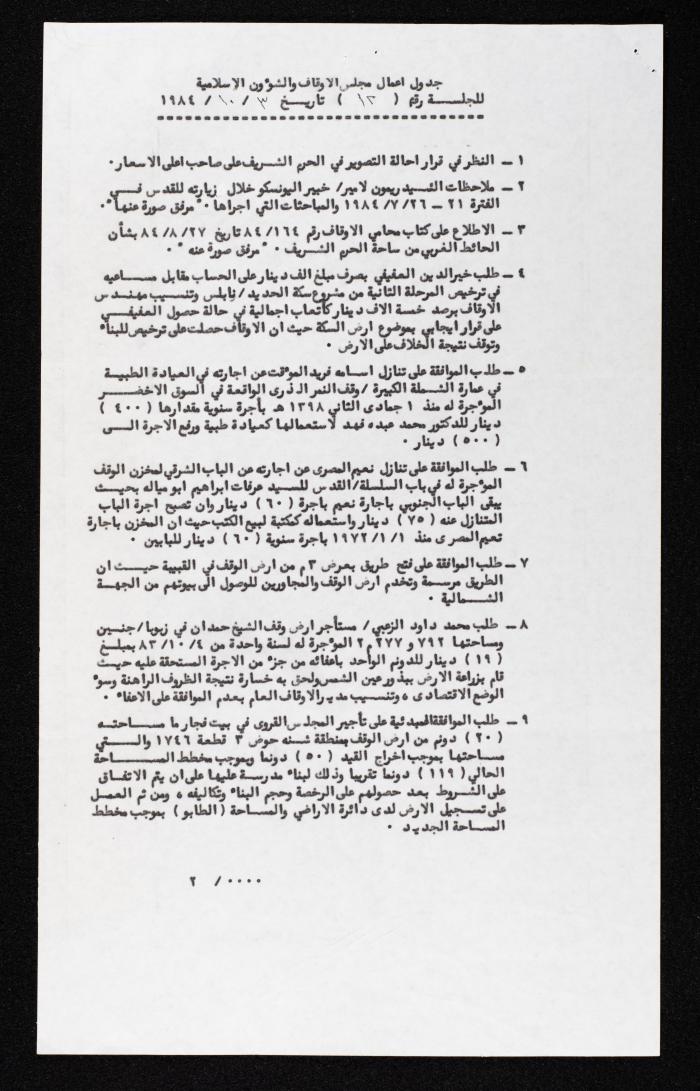 جدول اعمال مجلس الاوقاف والشوءون الاسلامية
للجلسة رقم ( ١٢ ) تاريخ ٣ / ١٠ / ١٩٨٤
١ ــ النظر في قرار احالة التصوير في الحرم الشريف على صاحب اعلى الاسعار ٠
٢ ــ ملاحظات السيد ريمون لامير/ خبير اليونسكو خلال زيارته للقدس في
الفترة ٢١ ــ ١٩٨٤/٧/٢٦ والمباحثات التي اجراها ٠ " مرفق صورة عنها " ٠
٣ ــ الاطلاع على كتاب محامي الاوقاف رقم ٨٤/١٦٤ تاريخ ٨٤/٨/٢٧ بشأن
الحائط الغربي من ساحة الحرم الشريف ٠ " مرفق صورة عنه " ٠
٤ ــ طلب خير الدين العفيفي بصرف مبلغ الف دينار على الحساب مقابل مساعيه
في ترخيص المرحلة الثانية من مشروع سكة الحديد/ نابلس وتنسيب مهندس
الاوقاف برصد خمسة الاف دينار كأتعاب اجمالية في حالة حصول العفيفي
على قرار ايجابي بموضوع ارض السكة حيث ان الاوقاف حصلت على ترخيص للبناء
وتوقف نتيجة الخلاف على الارض ٠
٥ ــ طلب الموافقة على تنازل اسامه فريد الموءقت عن اجارته في العيادة الطبية
في عمارة الشملة الكبيرة / وقف النمر الذرى الواقعة في السوق الاخضر
الموءجرة له منذ ١ جمادى الثاني ١٣٩٨ هـ بأجرة سنوية مقدارها ( ٤٠٠ )
دينار للدكتور محمد عبده فهد لاستعمالها كعيادة طبية ورفع الاجرة الى
( ٥٠٠ ) دينار ٠
٦ ــ طلب الموافقة على تنازل نعيم المصرى عن اجارته عن الباب الشرقي لمخزن الوقف
الموءجرة له في باب السلسلة/ القدس للسيد عرفات ابراهيم ابو مياله بحيث
يبقى الباب الجنوبي باجارة نعيم باجرة ( ٦٠ ) دينار وان تصبح اجرة الباب
المتنازل عنه ( ٧٥ ) دينار واستعماله كمكتبة لبيع الكتب حيث ان المخزن باجارة
نعيم المصرى منذ ١٩٧٢/١/١ باجرة سنوية ( ٦٠ ) دينار للبابين ٠
٧ ــ طلب الموافقة على فتح طريق بعرض ٣ م من ارض الوقف في القبيبة حيث ان
الطريق مرسمة وتخدم ارض الوقف والمجاورين للوصول الى بيوتهم من الجهة
الشمالية ٠
٨ ــ طلب محمد داود الزعبي/ مستأجر ارض وقف الشيخ حمدان في زبوبا/ جنين
وساحتها ٧٩٢ و ٢٧٧ م٢ الموءجرة له لسنة واحدة من ٨٣/١٠/٤ بمبلغ
( ١٩ ) دينار للدونم الواحد باعفائه من جزء من الاجرة المستحقة عليه حيث
قام بزراعة الارض ببذور عين الشمس ولحق به خسارة نتيجة الظروف الراهنة وسوء
الوضع الاقتصادى ، وتنسيب مدير الاوقاف العام بعدم الموافقة على الاعفاء ٠
٩ ــ طلب الموافقة المبدئية على تأجير المجلس القروى في بيت فجار ما مساحته
( ٢٠ ) دونم من ارض الوقف بمنطقة شنه حوض ٣ قطعة ١٧٤٦ والتي
مساحتها بموجب اخراج القيد ( ٥٠ ) دونما وبموجب مخطط المساحة
الحالي ( ١١٩ ) دونما تقريبا وذلك لبناء مدرسة عليها على ان يتم الاتفاق
على الشروط بعد حصولهم على الرخصة وحجم البناء وتكاليفه ، ومن ثم العمل
على تسجيل الارض لدى دائرة الاراضي والمساحة ( الطابو ) بموجب مخطط
المساحة الجديد ٠
٠٠٠٠ / ٢